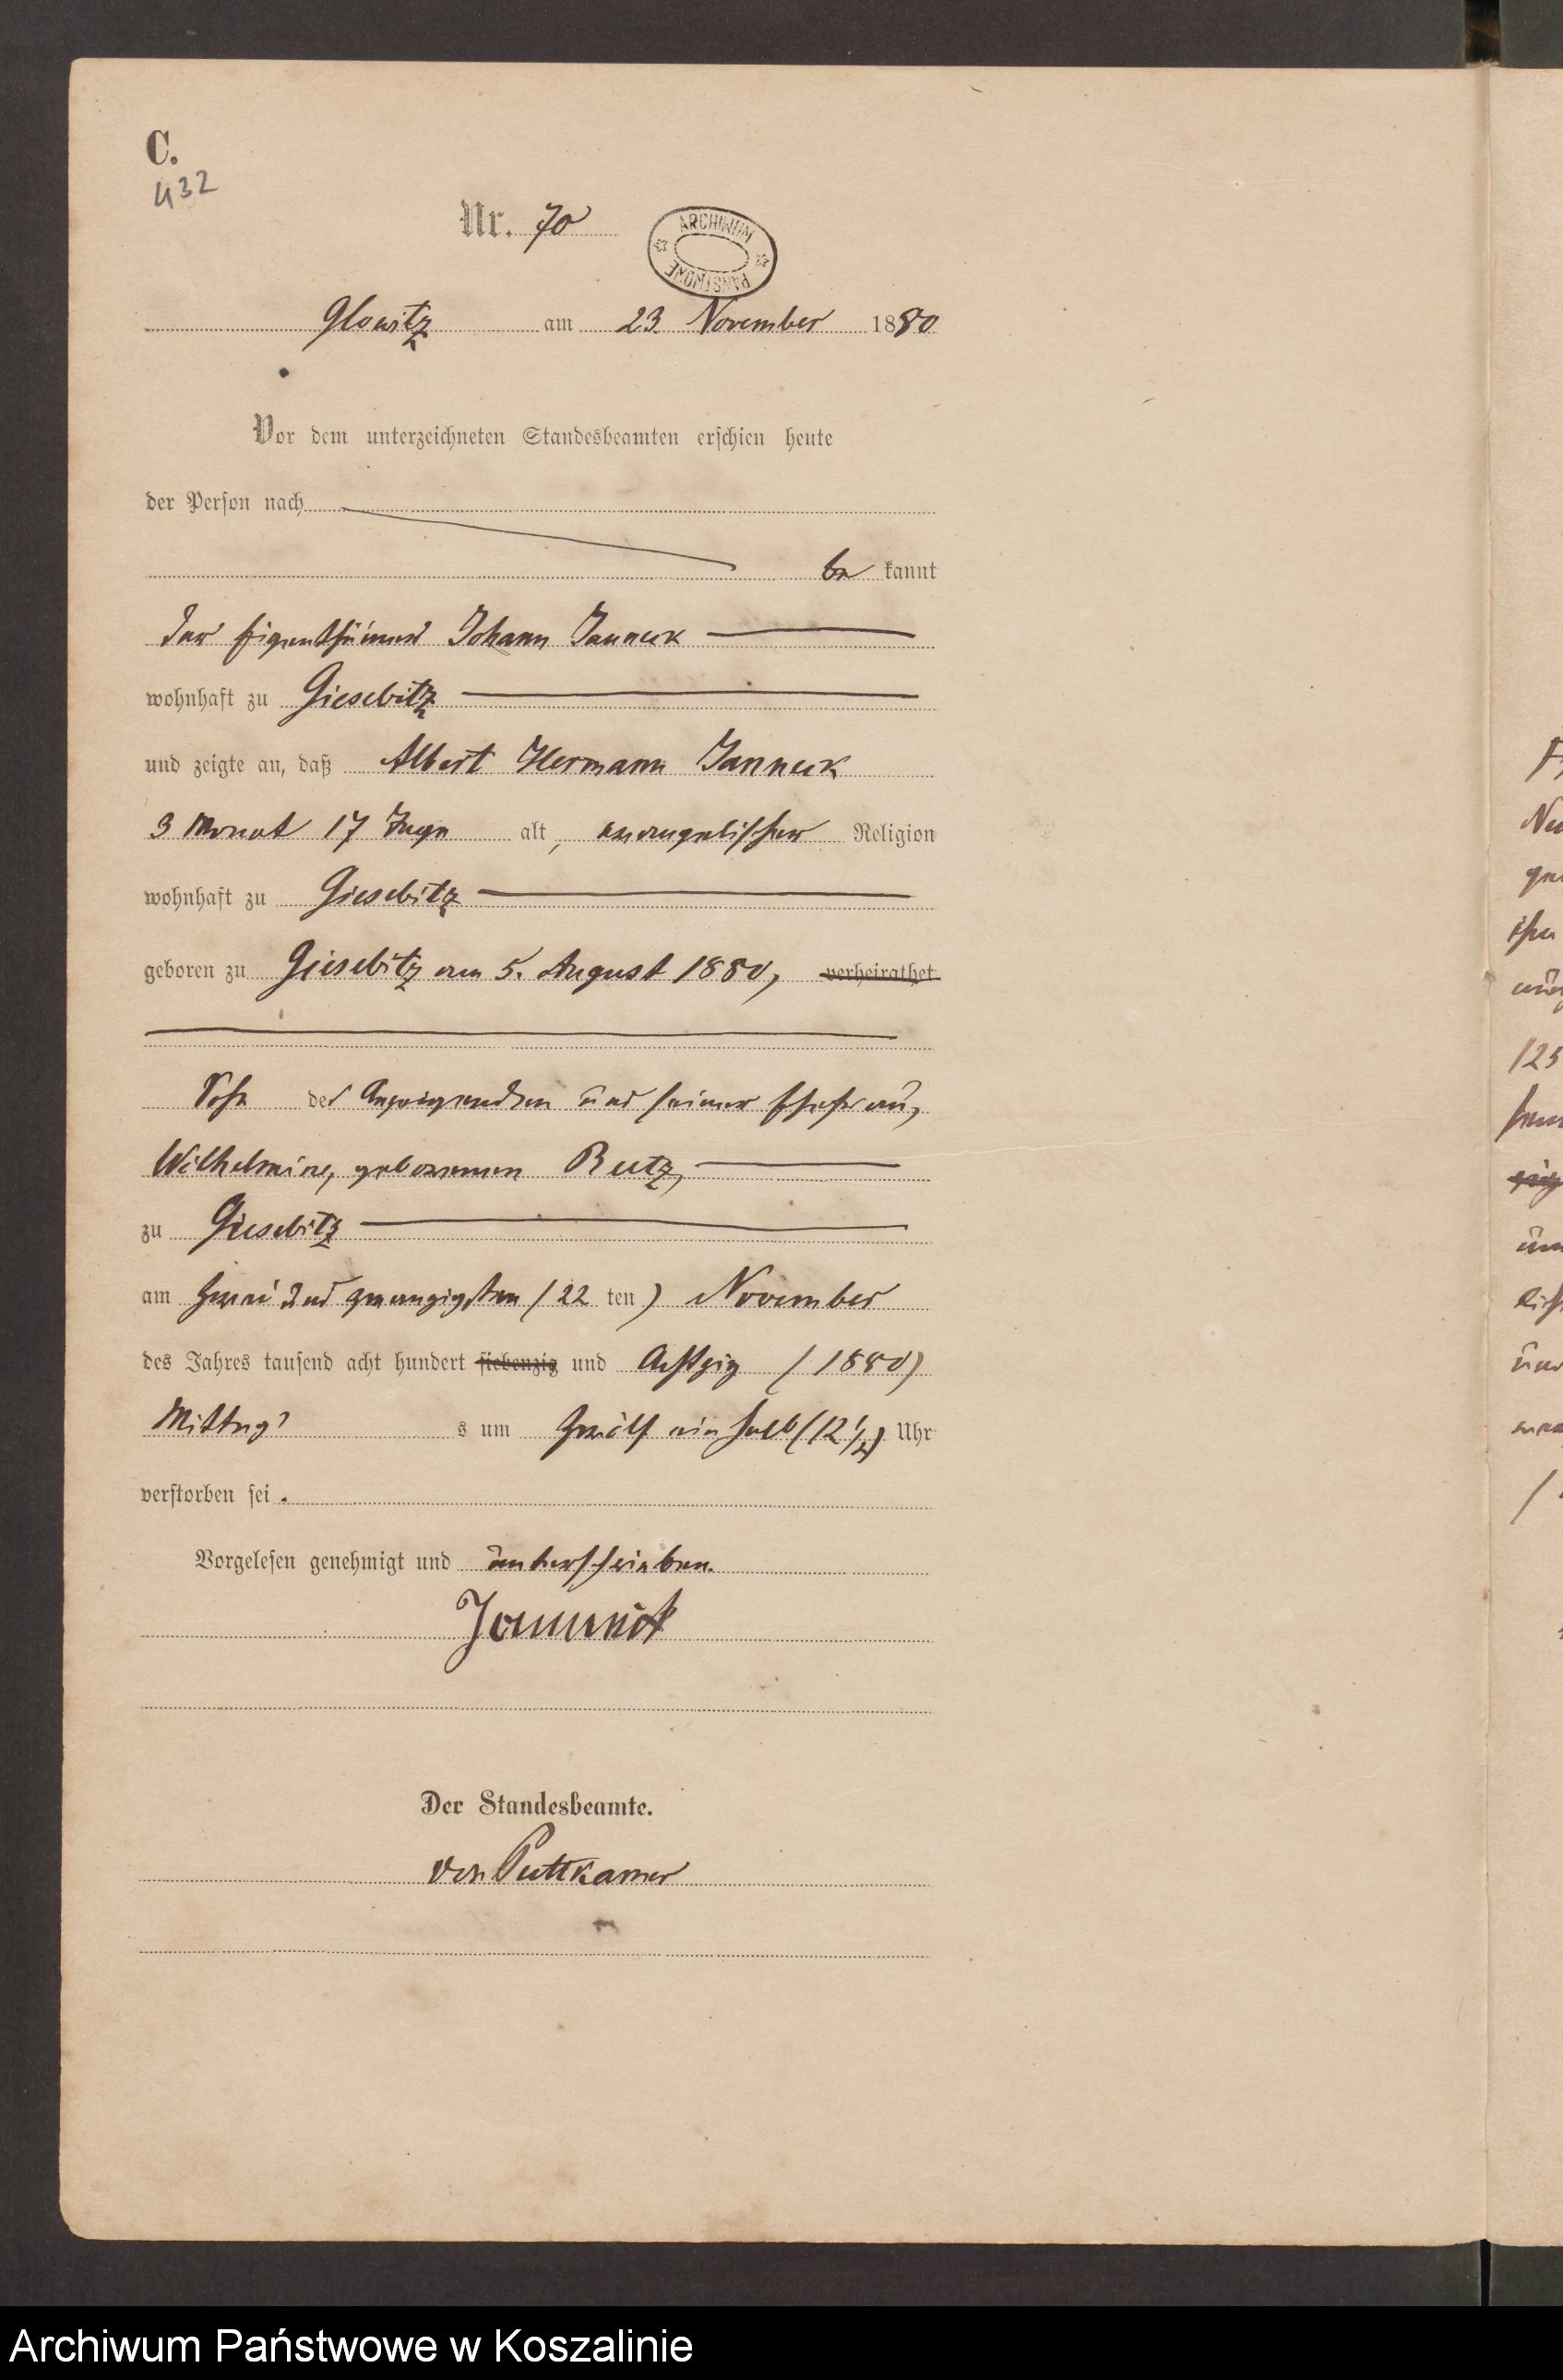 C.
432
Nr. 70
ARCHIWUM PAŃSTWOWE
Glowitz am 23 November 1880
Vor dem unterzeichneten Standesbeamten erschien heute
der Person nach
be kannt
der Eigenthümer Johann Janneck
wohnhaft zu Giesebitz
und zeigte an, daß Albert Hermann Janneck
3 Monat 17 Tage alt, evangelischer Religion
wohnhaft zu Giesebitz
geboren zu Giesebitz am 5. August 1880, verheirathet
Sohn des Anzeigenden und seiner Ehefrau,
Wilhelmine, geborenen Rutz,
zu Giesebitz
am zwei und zwanzigsten (22 ten) November
des Jahres tausend acht hundert siebenzig und Achtzig (1880)
Mittags um zwölf ein halb (12 1/2) Uhr
verstorben sei.
Vorgelesen genehmigt und unterschrieben.
Janneck
Der Standesbeamte.
von Puttkamer
Archiwum Państwowe w Koszalinie